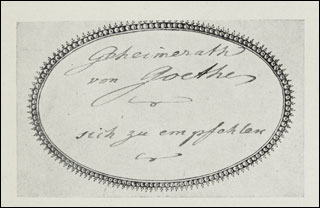 Geheimerath
von Goethe
sich zu empfehlen